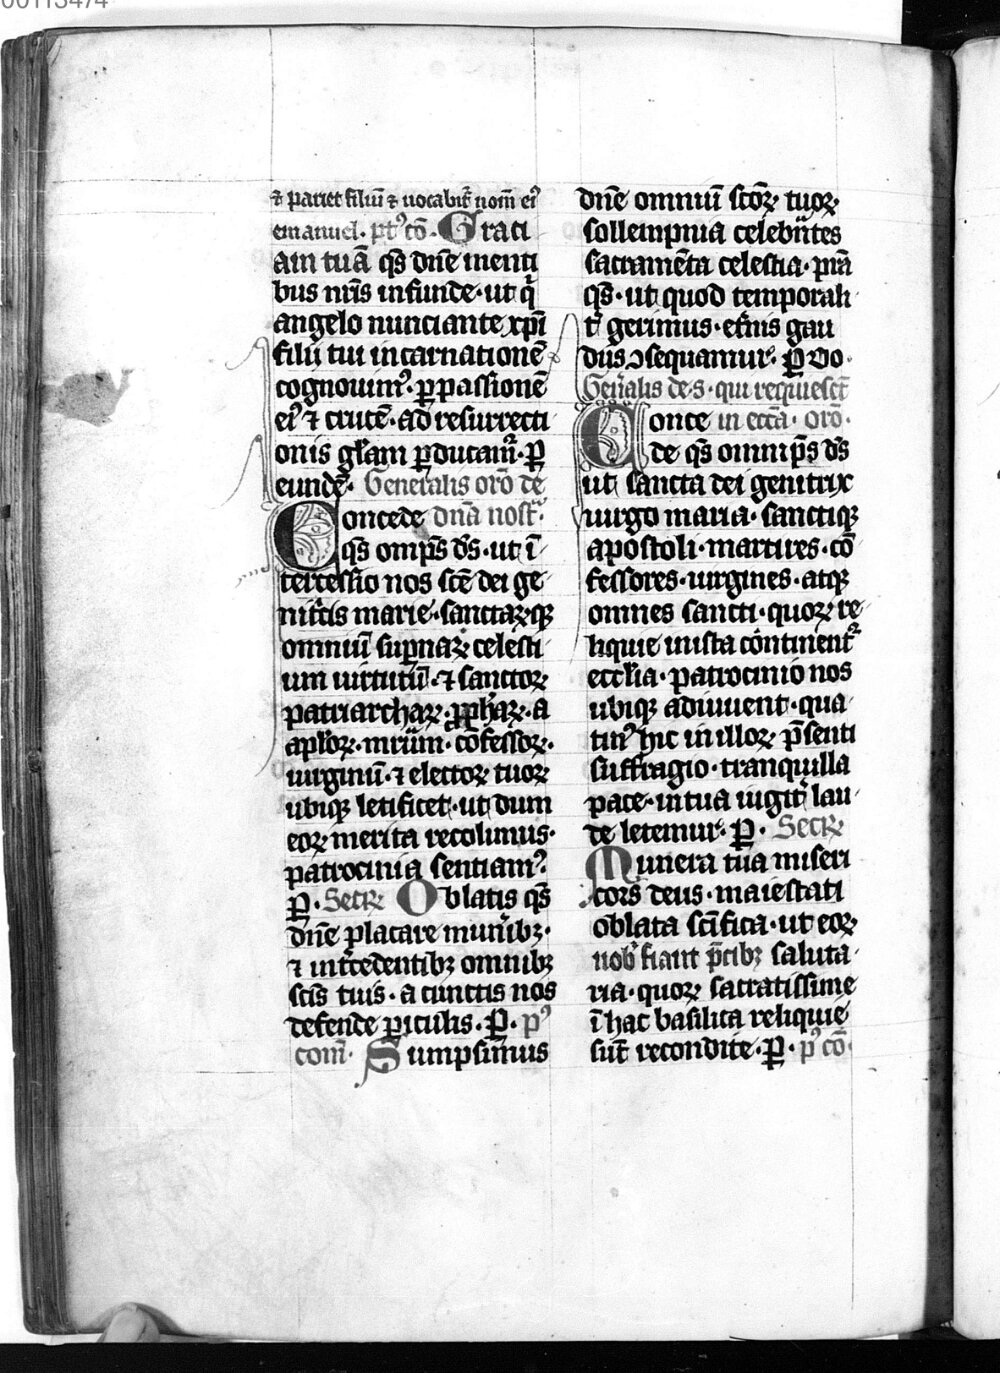 ⁊ pariet filiū ⁊ uocabit̄ nom̄ eiꝰ
emanuel· pt᷒ cō· Grati
am tuā qs̄ dn̄e menti
bus nr̄is infunde· ut qͥ
angelo nunciante xp̄i
filij tui incarnationē
cognouimꝰ· ꝑ passionē
eiꝰ ⁊ crucē· ad resurrecti
onis gl̄am ꝑducam̄· ꝑ
eundē· Generalis orō de
Concede dn̄a nost̄·
qs̄ omp̄s ds̄· ut ī
tercessio nos sc̄e dei ge
nitͥcis marie· sanctaꝝqꝫ
omniū suꝑnaꝝ celesti
um uirtutū· ⁊ sanctoꝝ
patriarchaꝝ· ꝓph̄aꝝ· a
apl̄oꝝ· mr̄um· cōfessoꝝ·
uirginū· ⁊ electoꝝ tuoꝝ
ubiqꝫ letificet· ut dum
eoꝝ merita recolimus·
patrocinia sentiamꝰ·
ꝑ· Secrꝫ Oblatis qs̄
dn̄e placare munͥibꝫ·
⁊ int̄cedentibꝫ omnibꝫ
sc̄is tuis· a cunctis nos
defende ꝑiculis· ꝑ· pꝰ
com̄· Sumpsimus
dn̄e omniū sc̄oꝝ tuoꝝ
sollempnia celebn̄tes
sacramēta celestia· pr̄a
qs̄· ut quod temporali
t̄ gerimus· et̄nis gau
diis ꝯsequamur· ꝑ Do·
Gen̄alis de· s· qui requiesct̄
Conce in ecc̄a· orō·
de qs̄ omnip̄s ds̄
ut sancta dei genitrix
uirgo maria· sanctiqꝫ
apostoli· martires· cō
fessores· uirgines· atqꝫ
omnes sancti· quoꝝ re
liquie in ista continent̄
eccl̄ia· patrocinio nos
ubiqꝫ adiuuent· qua
tinꝰ hic in illoꝝ p̄senti
suffragio· tranquilla
pace· in tua iugit̄ lau
de letemur· ꝑ· Secrꝫ
Munera tua miseri
cors deus· maiestati
oblata sc̄ifica· ut eoꝝ
nob̄ fiant p̄cibꝫ saluta
ria· quoꝝ sacratissime
ī hac basilica reliquie
sūt recondite· ꝑ· pꝰ cō·